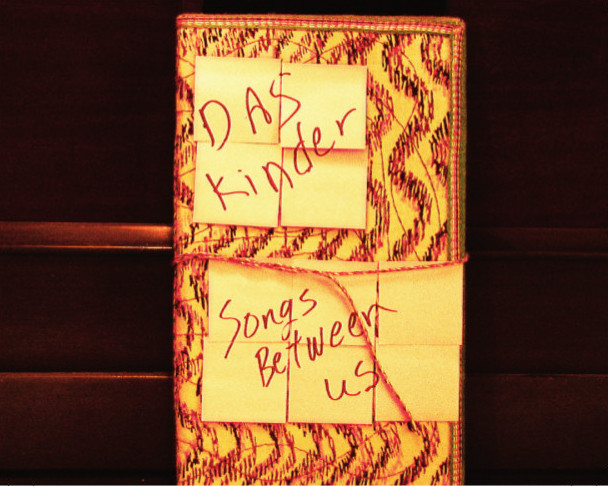 DAS
Kinder
Songs
Between
us